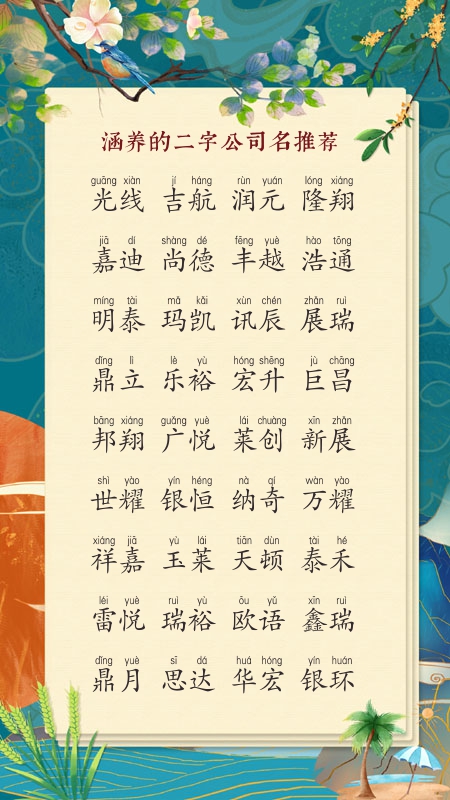 涵养的二字公司名推荐
guāng xiàn jí háng rùn yuán lóng xiáng
光线 吉航 润元 隆翔
jiā dí shàng dé fēng yuè hào tōng
嘉迪 尚德 丰越 浩通
míng tài mǎ kǎi xùn chén zhǎn ruì
明泰 玛凯 讯辰 展瑞
dǐng lì lè yù hóng shēng jù chāng
鼎立 乐裕 宏升 巨昌
bāng xiáng guǎng yuè lái chuàng xīn zhǎn
邦翔 广悦 莱创 新展
shì yào yín héng nà qí wàn yào
世耀 银恒 纳奇 万耀
xiáng jiā yù lái tiān dùn tài hé
祥嘉 玉莱 天顿 泰禾
léi yuè ruì yù ōu yǔ xīn ruì
雷悦 瑞裕 欧语 鑫瑞
dǐng yuè sī dá huá hóng yín huán
鼎月 思达 华宏 银环